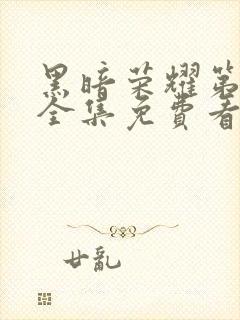 黑暗荣耀第
全集免費看
廿亂